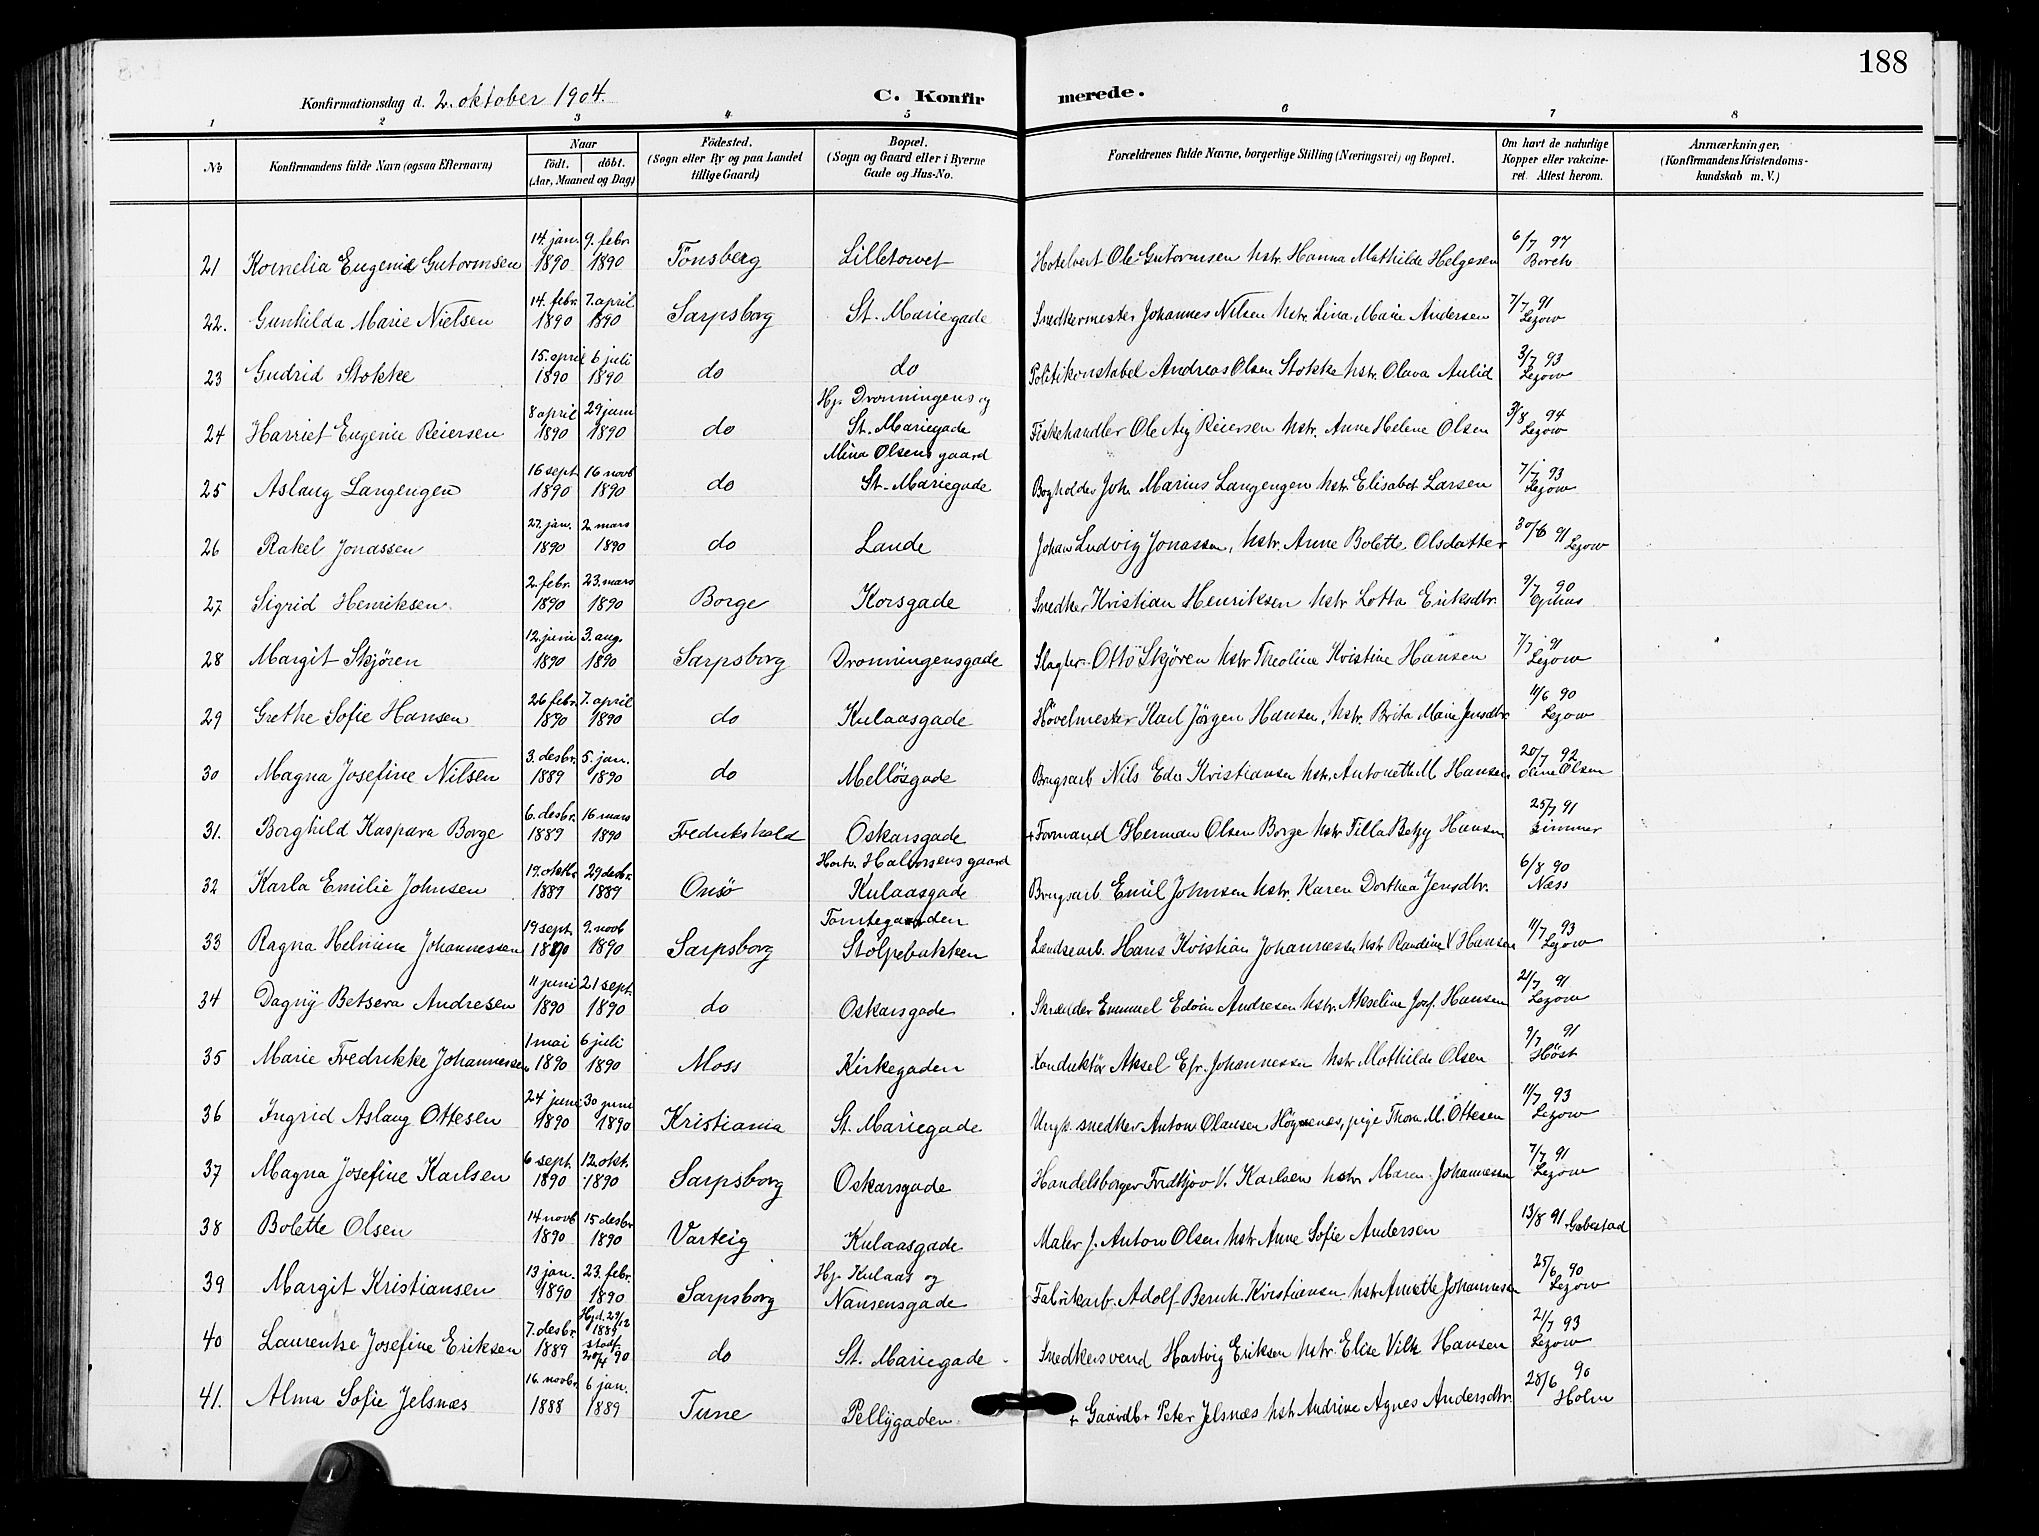 188
Konfirmationsdag d. 2. oktober 1904.
C. Konfirmerede.
1 2 3 4 5 6 7 8
No
Konfirmandens fulde Navn (ogsaa Efternavn)
Naar
födt. döbt.
(Aar, Maaned og Dag)
Födested.
(Sogn eller By og paa Landet
tillige Gaard)
Bopæl.
(Sogn og Gaard eller i Byerne
Gade og Hus-No.
Forældrenes fulde Navne, borgerlige Stilling (Næringsvei) og Bopæl.
Om havt de naturlige
Kopper eller vakcine-
ret. Attest herom.
Anmærkninger,
(Konfirmandens Kristendoms-
kundskab m. V.)
21 Kornelia Eugenie Gutormsen 14. jan. 1890 9. febr. 1890 Tönsberg Lilletorvet Hotelvert Ole Gutormsen hstr. Hanna Mathilde Helgesen 6/7 97
22. Gunhilda Marie Nielsen 14. febr. 1890 7. april 1890 Sarpsborg St. Mariegade Snedkermester Johannes Nilsen hstr. Lina Marie Andersen 7/7 91 Lezow
23 Gudrid Stokke 15. april 1890 6 juli 1890 do do Politikonstabel Andreas Olsen Stokke hstr. Olava Aulid 3/7 93 Lezow
24 Harriet Eugenie Reiersen 8 april 1890 29 juni 1890 do Hj. Dronningens og St. Mariegade Fiskehandler Ole Aug Reiersen hstr. Anne Helene Olsen 3/8 94 Lezow
25 Aslaug Langengen 16 sept. 1890 16 novb 1890 do Mina Olsens gaard St. Mariegade Bogholder Joh. Marius Langengen hstr. Elisabet Larsen 7/7 93 Lezow
26 Rakel Jonassen 27. jan. 1890 2. mars 1890 do Lande Johan Ludvig Jonassen, hstr. Anne Bolette Olsdatter 30/6 91 Lezow
27 Sigrid Henriksen 2. febr. 1890 23. mars 1890 Borge Korsgade Snedker Kristian Henriksen hstr Lotta Eriksdtr. 9/7 90
28 Margit Skjören 12. juni 1890 3. aug. 1890 Sarpsborg Dronningensgade Slagter Otto Skjören hstr Theoline Kristine Hansen 7/7 91 Lezow
29 Grethe Sofie Hansen 26 febr. 1890 7. april 1890 do Kulaasgade Hövelmester Karl Jörgen Hansen, hstr. Brita Marie Jensdtr. 11/6 90 Lezow
30 Magna Josefine Nilsen 3. desbr. 1889 5. jan. 1890 do Mellösgade Brugsarb Nils Edv Kristiansen hstr. Antonette M. Hansen 20/7 92 Oline Olsen
31. Borghild Kaspara Borge 6. desbr. 1889 16 mars 1890 Fredrikshald Oskarsgade + Formand Herman Olsen Borge hstr Tilla Betzy Hansen 25/7 91 Zimmer
32 Karla Emilie Johnsen 19. oktbr. 1889 29 desbr. 1889 Onsö Hartv. Halvorsens gaard Kulaasgade Brugsarb Emil Johnsen hstr. Karen Dorthea Jensdtr. 6/8 90 Næss
33 Ragna Helmine Johannessen 19 sept. 1890 9. novb 1890 Sarpsborg Tomtegaarden Stolpebakken Landsearb. Hans Kristian Johannessen hstr Randine K Hansen 11/7 93 Lezow
34 Dagny Betsera Andresen 11 juni 1890 21 sept. 1890 do Oskarsgade Skrædder Emmuel Edvin Andresen hstr. Akseline Josf. Hansen 21/7 91 Lezow
35 Marie Fredrikke Johannessen 1 mai 1890 6 juli 1890 Moss Kirkegaden Konduktör Aksel Efr. Johannessen hstr Mathilde Olsen 9/7 91 Höst
36 Ingrid Aslaug Ottesen 24 juni 1890 30 juni 1890 Kristiania St. Mariegade Ungk. snedker Anton Olausen Högnenæs, pige Thora M. Ottesen 11/7 93 Lezow
37 Magna Josefine Karlsen 6 sept. 1890 12. okt. 1890 Sarpsborg Oskarsgade Handelsborger Fridtjov V. Karlsen hstr Maren Johannessen 7/7 91 Lezow
38 Bolette Olsen 14 novb 1890 15 desbr 1890 Varteig Kulaasgade Maler J. Anton Olsen hstr Anne Sofie Andersen 13/8 91
39 Margit Kristiansen 13 jan. 1890 23. febr. 1890 Sarpsborg Hj. Kulaas og Nansensgade Fabrikarb. Adolf Bernh. Kristiansen hstr Anette Johannessen 25/6 90 Lezow
40 Laurentze Josefine Eriksen 7. desbr. 1889 Hjd. 29/12 1889 stadf. 20/4 90 do St. Mariegade Snedkersvend Hartvig Eriksen hstr. Elise Vilh Hansen 21/7 93 Lezow
41. Alma Sofie Jelsnæs 16. novbr. 1888 6 jan. 1889 Tune Pellygaden + Gaardbr Peter Jelsnæs hstr Andrine Agnes Andersdtr. 28/6 90 Holm